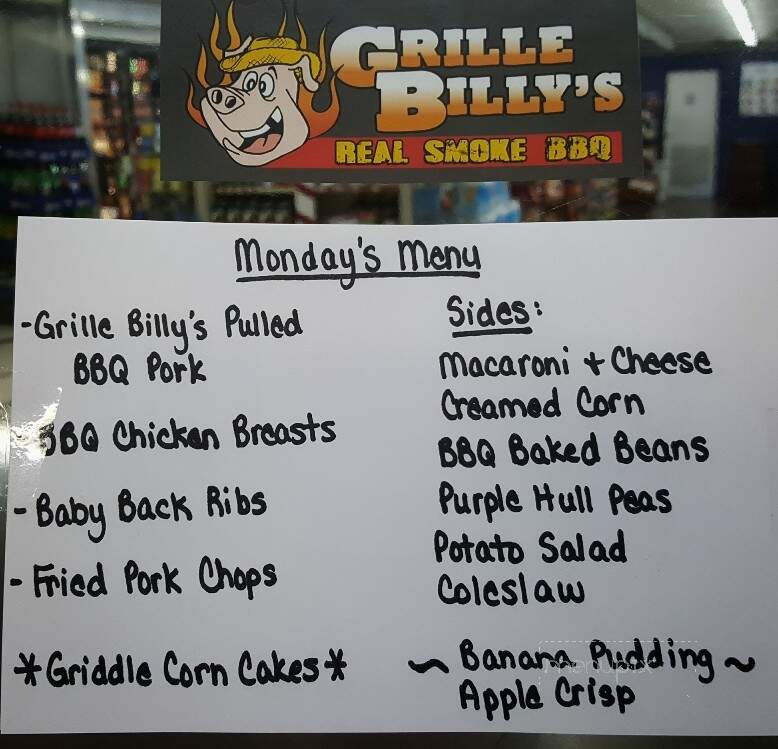 GRILLE
BILLY'S
REAL SMOKE BBQ
Monday's Menu
-Grille Billy's Pulled
BBQ Pork
- BBQ Chicken Breasts
- Baby Back Ribs
- Fried Pork Chops
*Griddle Corn Cakes*
Sides:
Macaroni + Cheese
Creamed Corn
BBQ Baked Beans
Purple Hull Peas
Potato Salad
Coleslaw
~ Banana Pudding ~
Apple Crisp